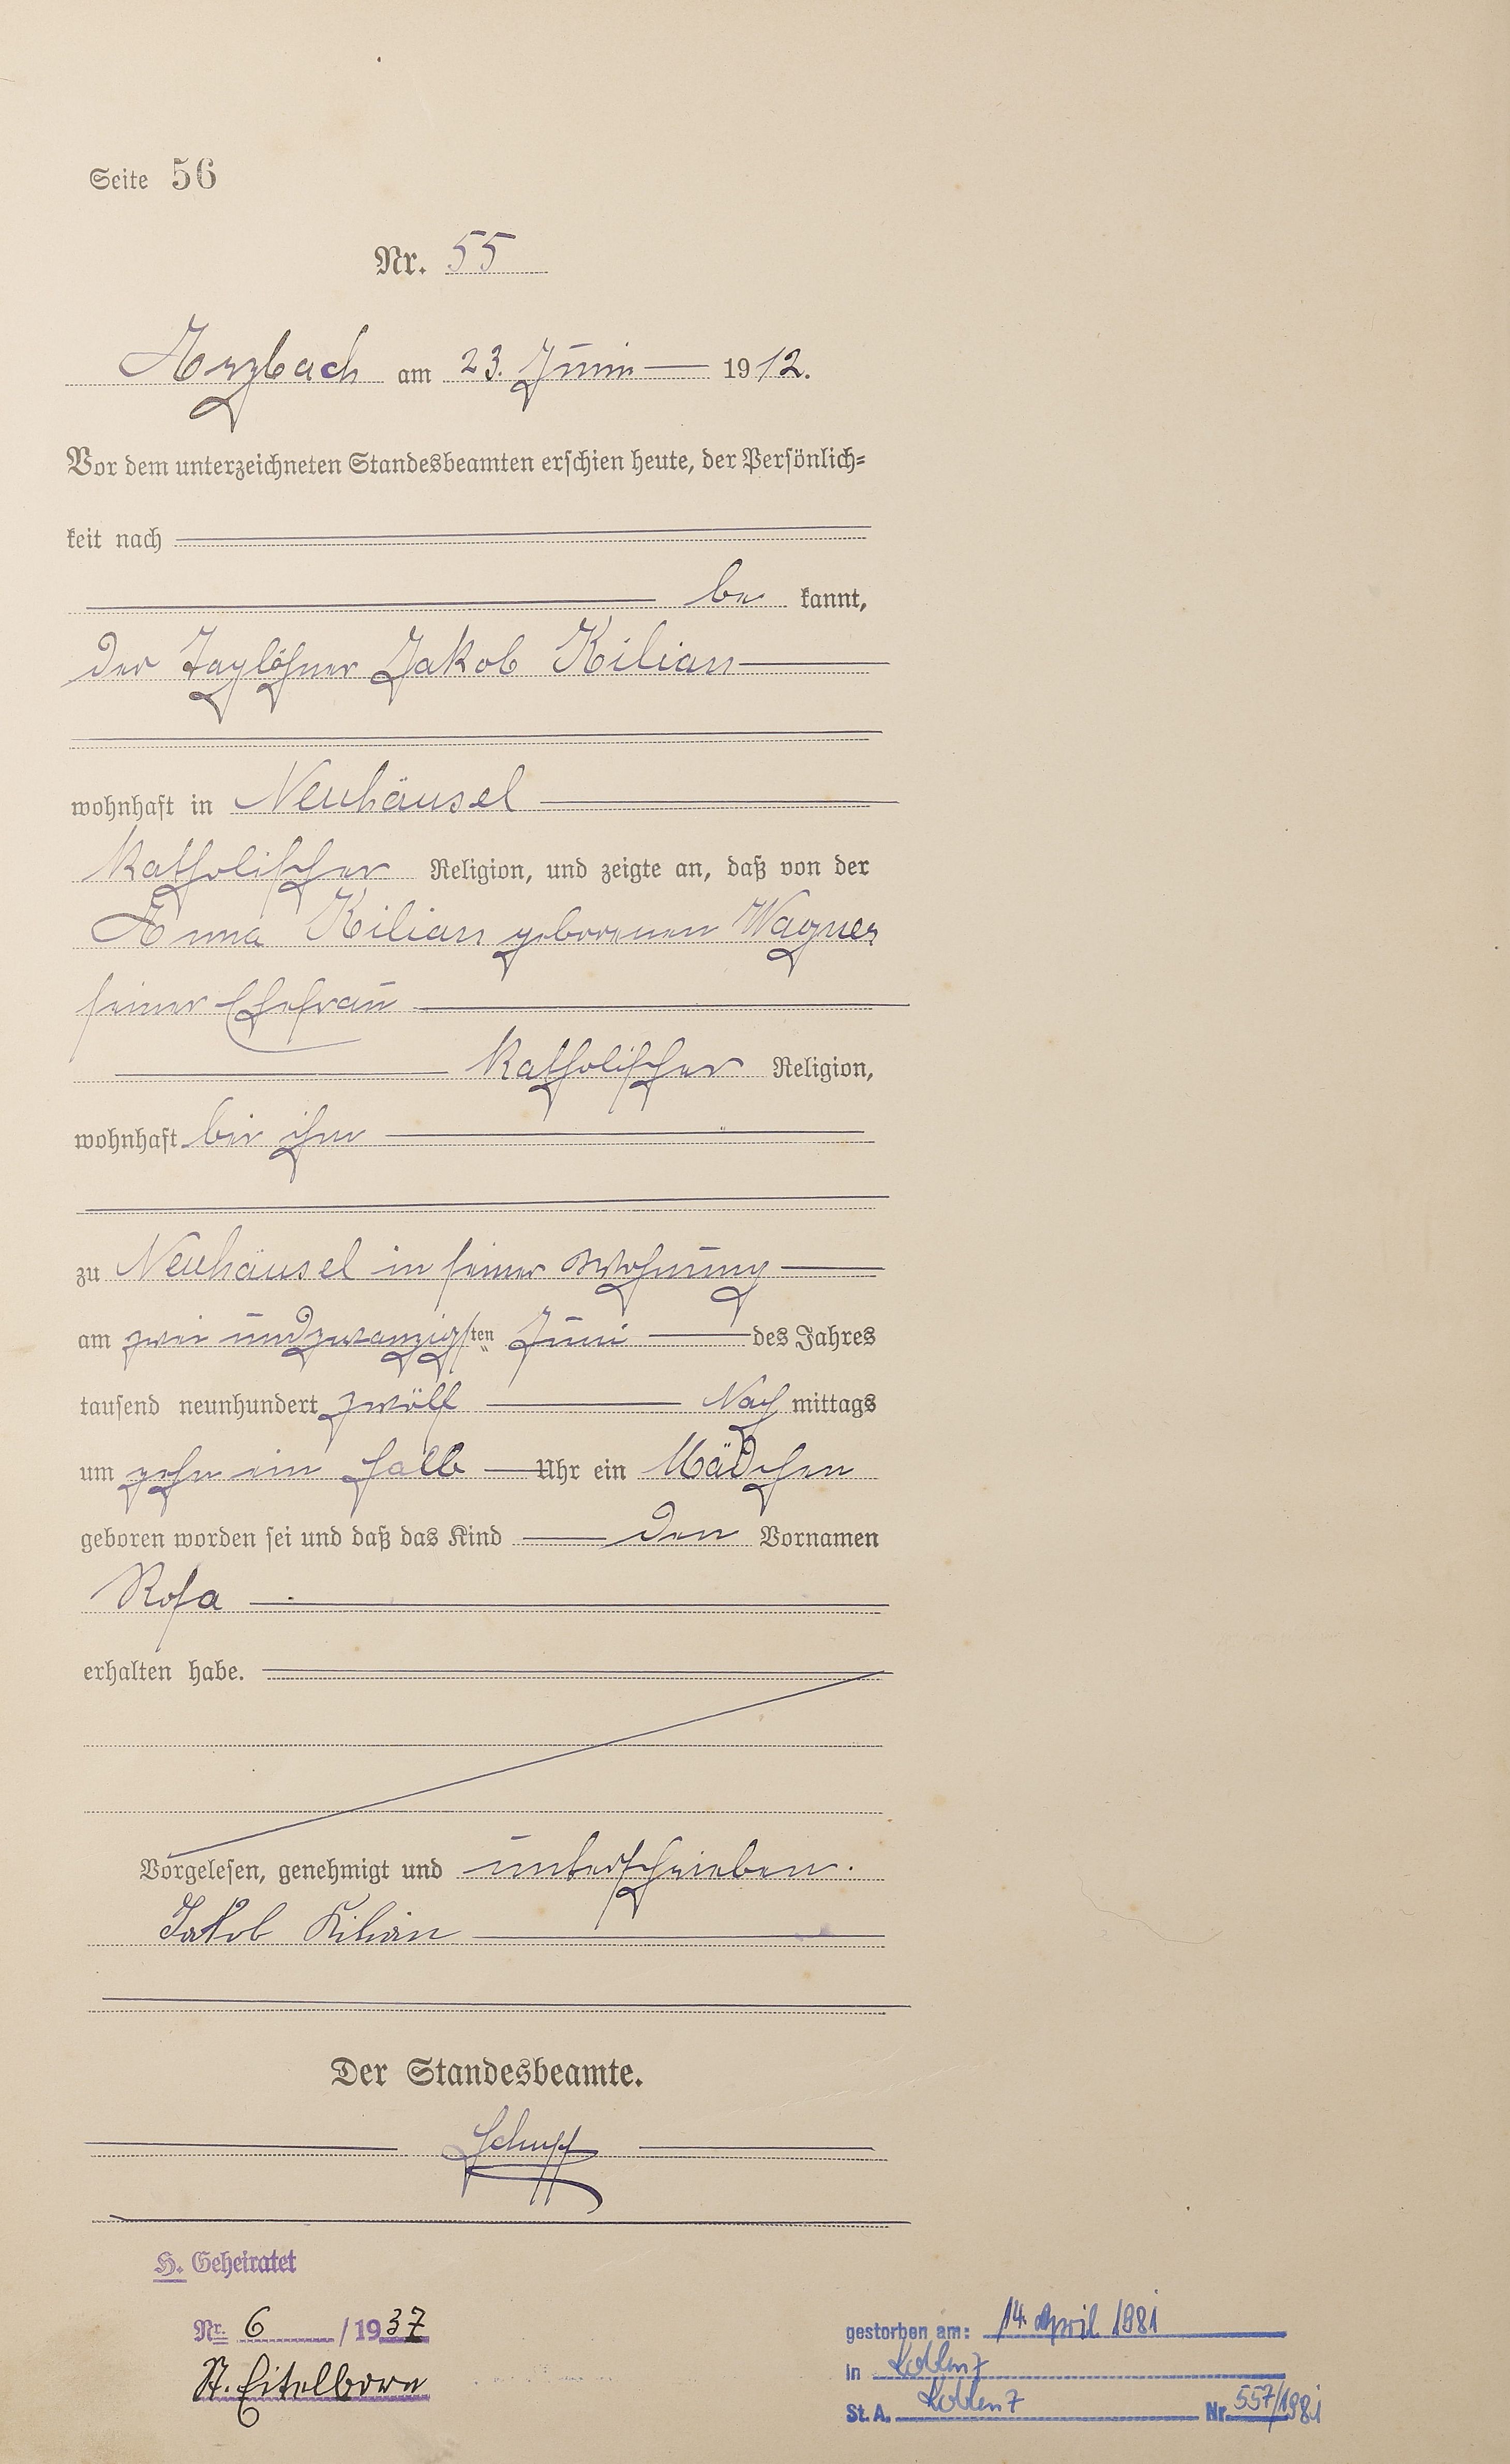 Seite 56
Nr. 55
Arzbach am 23. Juni 1912.
Vor dem unterzeichneten Standesbeamten erschien heute, der Persönlich-
keit nach
be kannt,
der Taglöhner Jakob Kilian
wohnhaft in Neuhäusel
katholischer Religion, und zeigte an, daß von der
Anna Kilian geborenen Wagner
seiner Ehefrau
katholischer Religion,
wohnhaft bei ihm
zu Neuhäusel in seiner Wohnung
am zwei und zwanzigsten Juni des Jahres
tausend neunhundert zwölf Nach mittags
um zehn ein halb Uhr ein Mädchen
geboren worden sei und daß das Kind den Vornamen
Rosa
erhalten habe.
Vorgelesen, genehmigt und unterschrieben.
Jakob Kilian
Der Standesbeamte.
Schupp
H. Geheiratet
Nr. 6 / 1937
St. Eitelborn
gestorben am: 14. April 1981
in Koblenz
St. A. Koblenz Nr. 557/1981